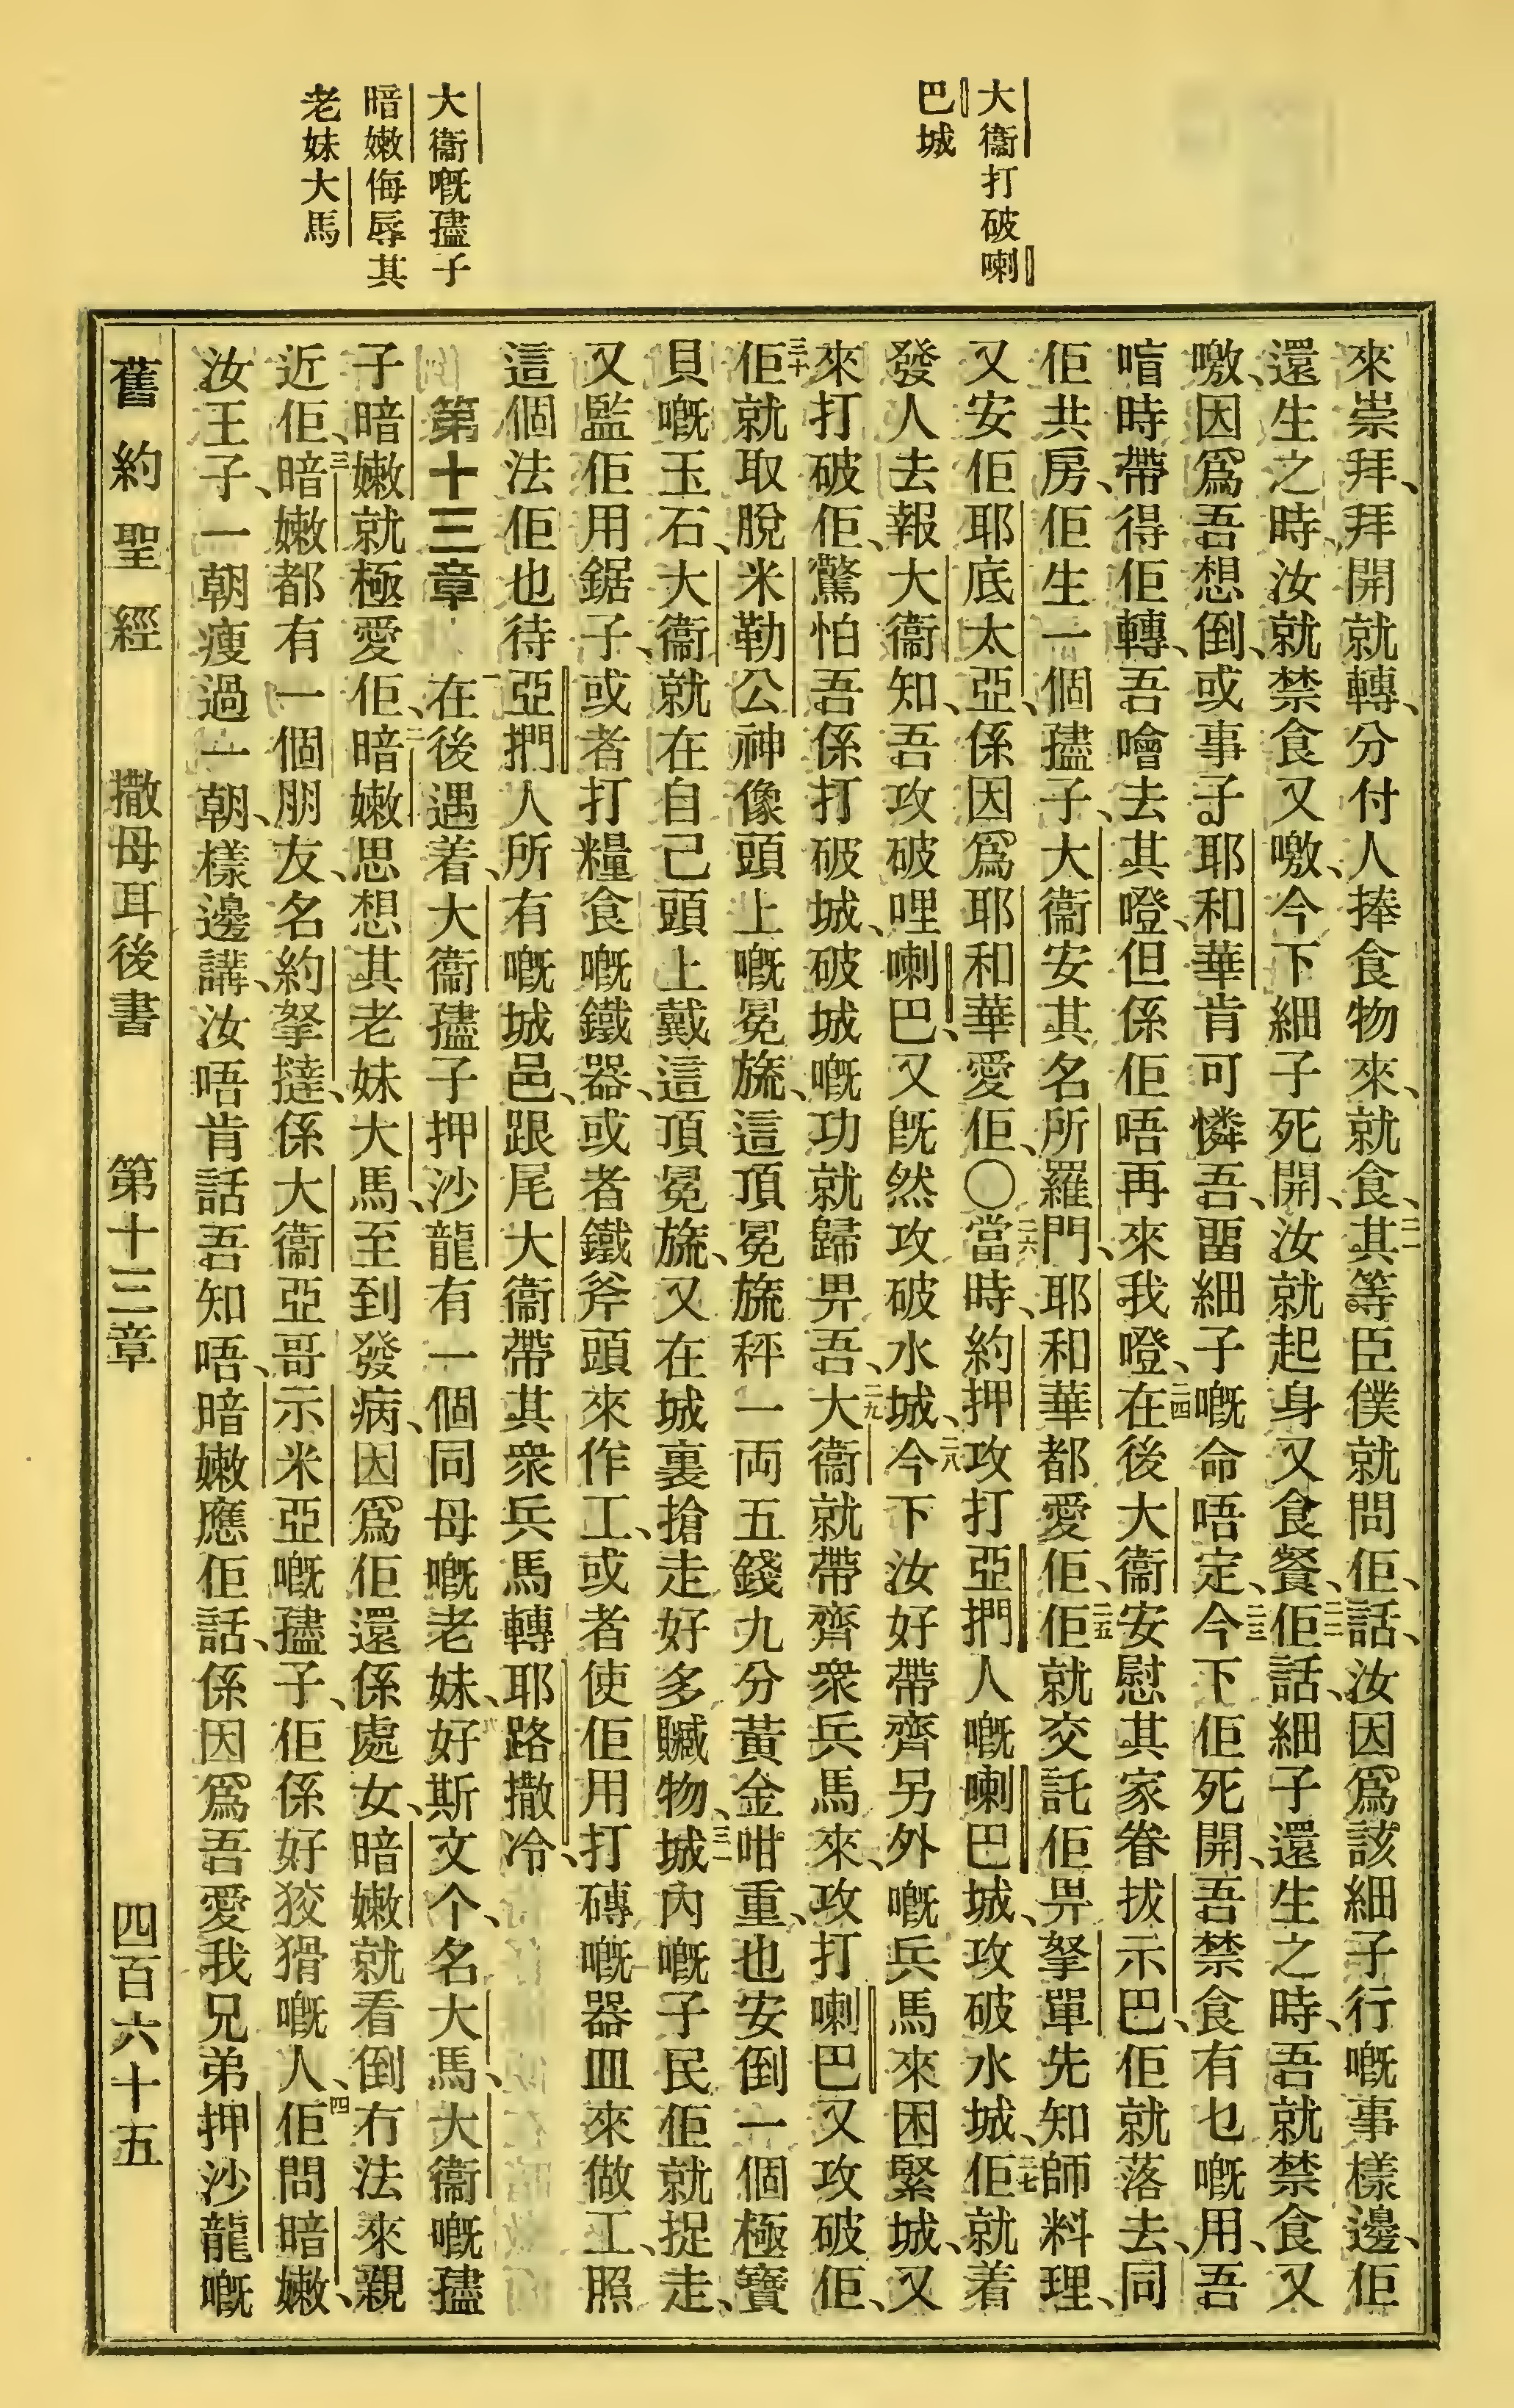 大衞打破喇
巴城
大衞嘅㜽子
暗嫩侮辱其
老妹大馬
來崇拜、拜開就轉、分付人捧食物來、就食、二一其等臣僕就問佢、話、汝因爲該細子行嘅事樣邊、佢
還生之時、汝就禁食又噭、今下細子死開、汝就起身又食餐、二二佢話、細子還生之時、吾就禁食又
噭、因爲吾想倒、或事子、耶和華肯可憐吾、畱細子嘅命唔定、二三今下佢死開、吾禁食有乜嘅用、吾
啃時帶得佢轉、吾噲去其噔、但係佢唔再來我噔、二四在後大衞安慰其家眷拔示巴、佢就落去、同
佢共房、佢生一個㜽子、大衞安其名所羅門、耶和華都愛佢、二五佢就交託佢畀拏單先知師料理、
又安佢耶底太亞、係因爲耶和華愛佢、〇二六當時、約押攻打亞捫人嘅喇巴城、攻破水城、二七佢就着
發人去報大衞知、吾攻破哩喇巴、又既然攻破水城、二八今下汝好帶齊另外嘅兵馬來困緊城、又
來打破佢、驚怕吾係打破城、破城嘅功就歸畀吾、二九大衞就帶齊衆兵馬來、攻打喇巴又攻破佢、
三十佢就取脫米勒公神像頭上嘅冕旒、這頂冕旒秤一両五錢九分黃金咁重、也安倒一個極寶
貝嘅玉石、大衞就在自己頭上戴這頂冕旒、又在城裏搶走好多贓物、三一城內嘅子民佢就捉走、
又監佢用鋸子、或者打糧食嘅鐵器、或者鐵斧頭來作工、或者使佢用打磚嘅器皿來做工、照
這個法佢也待亞捫人所有嘅城邑、跟尾大衞帶其衆兵馬轉耶路撒冷、
第十三章 一在後遇着、大衞㜽子押沙龍有一個同母嘅老妹、好斯文个、名大馬、大衞嘅㜽
子暗嫩就極愛佢、二暗嫩思想其老妹大馬、至到發病、因爲佢還係處女、暗嫩就看倒冇法來親
近佢、三暗嫩都有一個朋友、名約拏撻、係大衞亞哥示米亞嘅㜽子、佢係好狡猾嘅人、四佢問暗嫩、
汝王子、一朝瘦過一朝、樣邊講、汝唔肯話吾知唔、暗嫩應佢話、係因爲吾愛我兄弟押沙龍嘅
舊約聖經 撒母耳後書 第十三章 四百六十五